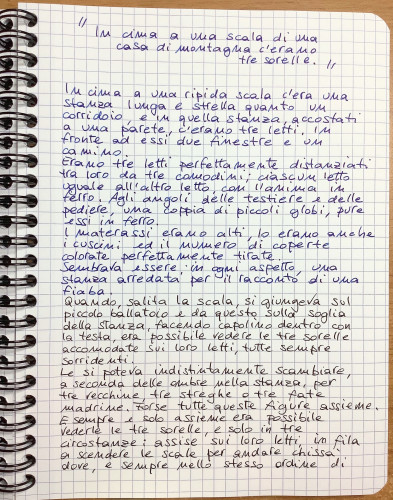 "In cima a una scala di una
casa di montagna c'erano
tre sorelle."
In cima a una ripida scala c'era una
stanza lunga e strella quanto un
corridoio, e in quella stanza, accostati
a una parete, c'erano tre letti. In
fronte ad essi due finestre e un
camino.
Erano tre letti perfettamente distanziati
tra loro da tre comodini; ciascun letto
uguale all'altro letto, con l'anima in
ferro. Agli angoli delle testiere e delle
pediere, una coppia di piccoli globi, pure
essi in ferro.
I materassi erano alti, lo erano anche
i cuscini ed il numero di coperte
colorate perfettamente tirate.
Sembrava essere, in ogni aspetto, una
stanza arredata per il racconto di una
fiaba.
Quando, salita la scala, si giungeva sul
piccolo ballatoio e da questo sulla soglia
della stanza, facendo capolino dentro con
la testa, era possibile vedere le tre sorelle
accomodate sui loro letti, tutte sempre
sorridenti.
Le si poteva indistintamente scambiare,
a seconda delle ombre nella stanza, per
tre vecchine, tre streghe o tre fate
madrine. Forse tutte queste figure assieme.
E sempre e solo assieme era possibile
vederle le tre sorelle, e solo in tre
circostanze: assise sui loro letti, in fila
a scendere le scale per andare chissà
dove, e sempre nello stesso ordine di